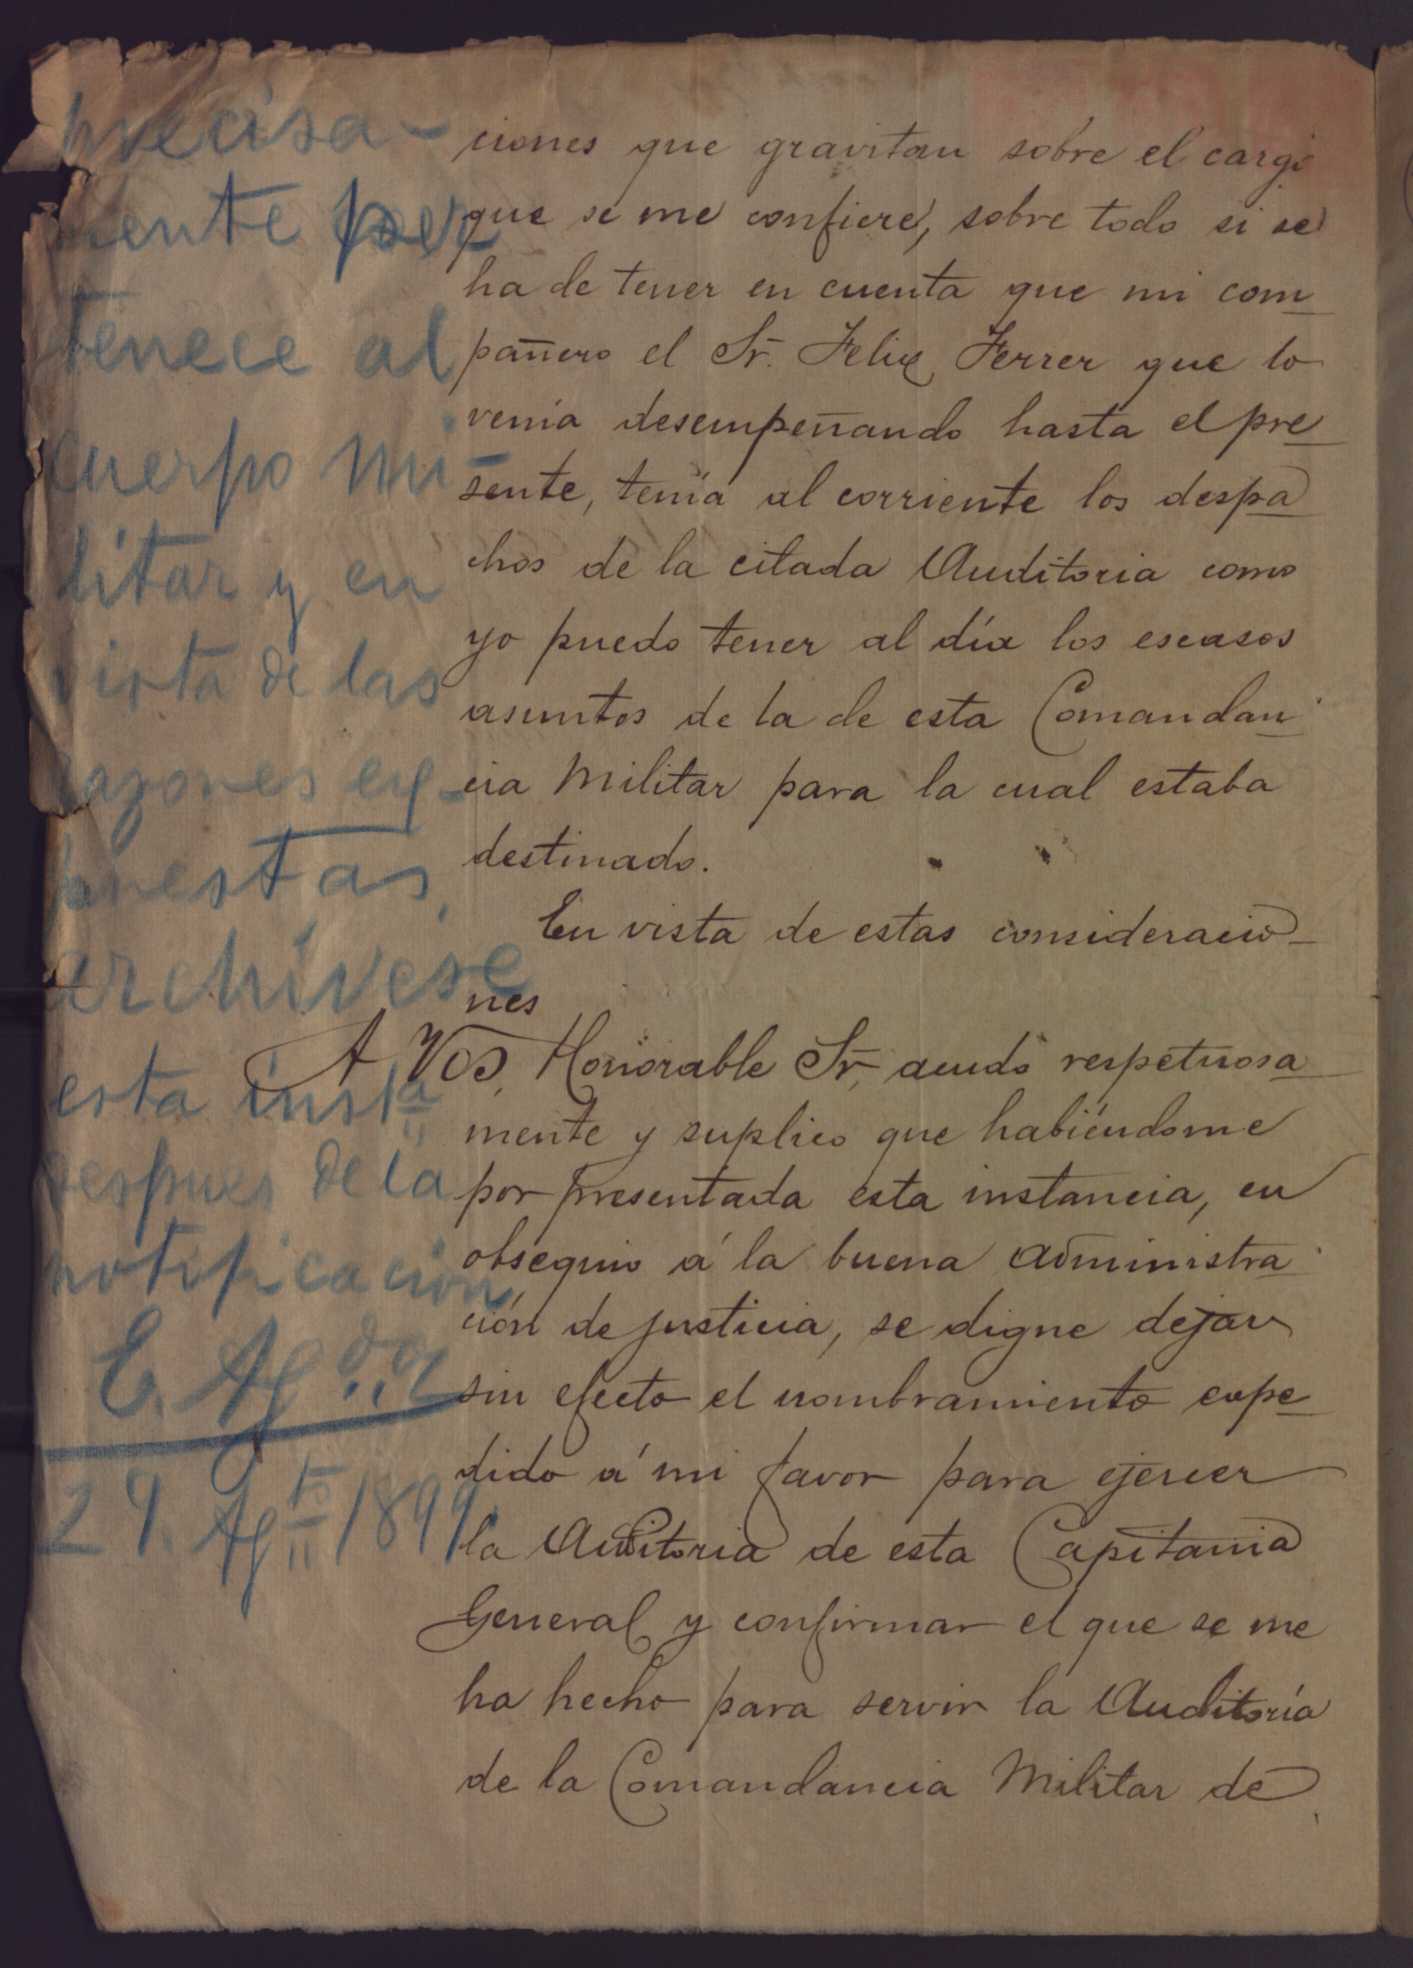 precisa-
mente per
tenece al
cuerpo mi-
litar y en
vista de las
razones ex-
puestas,
archívese
esta insta
despues de la
notificacion
E. Ag do
29. Agto 1899.
ciones que gravitan sobre el cargo
que se me confiere, sobre todo si se
ha de tener en cuenta que mi com
pañero el Sr. Felix Ferrer que lo
venía desempeñando hasta el pre
sente, tenía al corriente los despa
chos de la citada Auditoria como
yo puedo tener al día los escasos
asuntos de la de esta Comandan
cia Militar para la cual estaba
destinado.
En vista de estas consideracio-
nes
A Vos, Honorable Sr, acudo respetuosa
mente y suplico que habiéndome
por presentada esta instancia, en
obsequio á la buena administra
ción de justicia, se digne dejar
sin efecto el nombramiento expe
dido á mi favor para ejercer
la Auditoria de esta Capitania
General y confirmar el que se me
ha hecho para servir la Auditoría
de la Comandancia Militar de